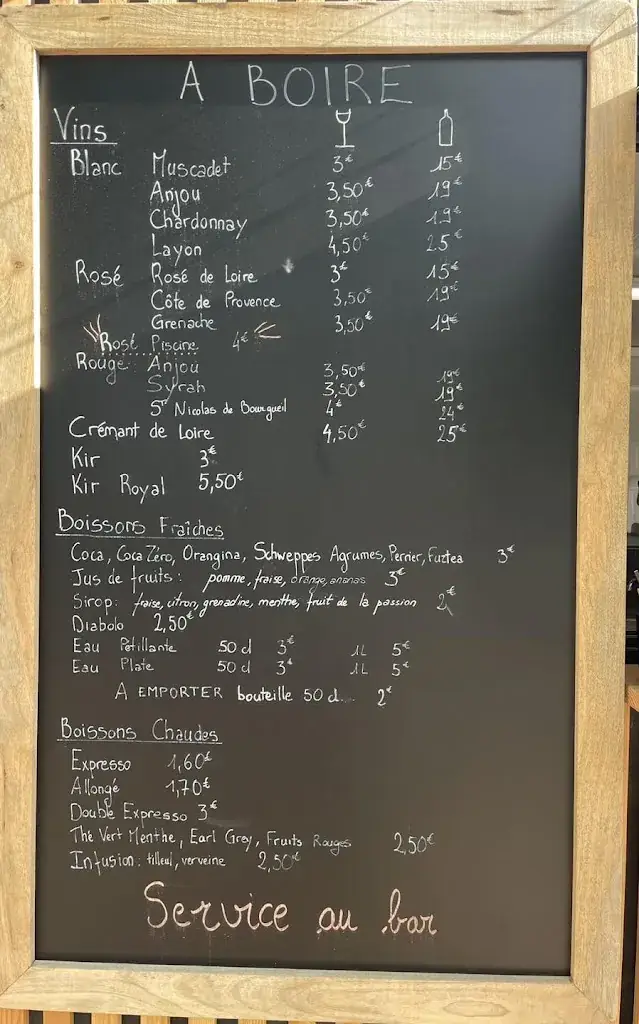 A BOIRE
Vins
Blanc Muscadet 3€ 15€
Anjou 3,50€ 19€
Chardonnay 3,50€ 19€
Layon 4,50€ 25€
Rosé Rosé de Loire 3€ 15€
Côte de Provence 3,50€ 19€
Grenache 3,50€ 19€
Rosé Piscine 4€
Rouge Anjou 3,50€ 19€
Syrah 3,50€ 19€
St Nicolas de Bourgueil 4€ 24€
Crémant de Loire 4,50€ 25€
Kir 3€
Kir Royal 5,50€
Boissons Fraîches
Coca, Coca Zéro, Orangina, Schweppes Agrumes, Perrier, Fuztea 3€
Jus de fruits: pomme, fraise, orange, ananas 3€
Sirop: fraise, citron, grenadine, menthe, fruit de la passion 2€
Diabolo 2,50€
Eau Pétillante 50 cl 3€ 1L 5€
Eau Plate 50 cl 3€ 1L 5€
A EMPORTER bouteille 50 cl 2€
Boissons Chaudes
Expresso 1,60€
Allongé 1,70€
Double Expresso 3€
Thé Vert Menthe, Earl Grey, Fruits Rouges 2,50€
Infusion: tilleul, verveine 2,50€
Service au bar